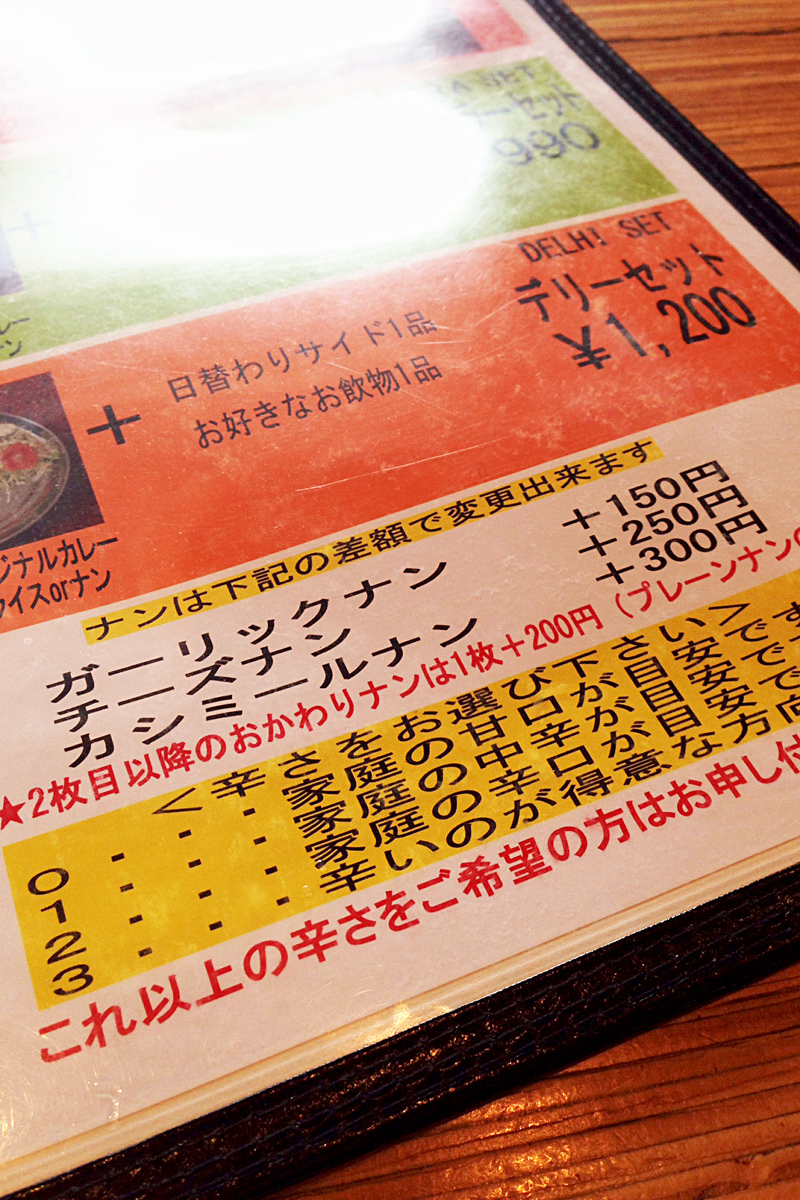 SET
ーセット
990
+
レー
ン
DELHI SET
デリーセット
¥1,200
+
日替わりサイド1品
お好きなお飲物1品
ジナルカレー
ライスorナン
ナンは下記の差額で変更出来ます
ガーリックナン +150円
チーズナン +250円
カシミールナン +300円
★2枚目以降のおかわりナンは1枚+200円(プレーンナンの
<辛さをお選び下さい>
0・・・家庭の甘口が目安です
1・・・家庭の中辛が目安で
2・・・家庭の辛口が目安で
3・・・辛いのが得意な方向
これ以上の辛さをご希望の方はお申し付